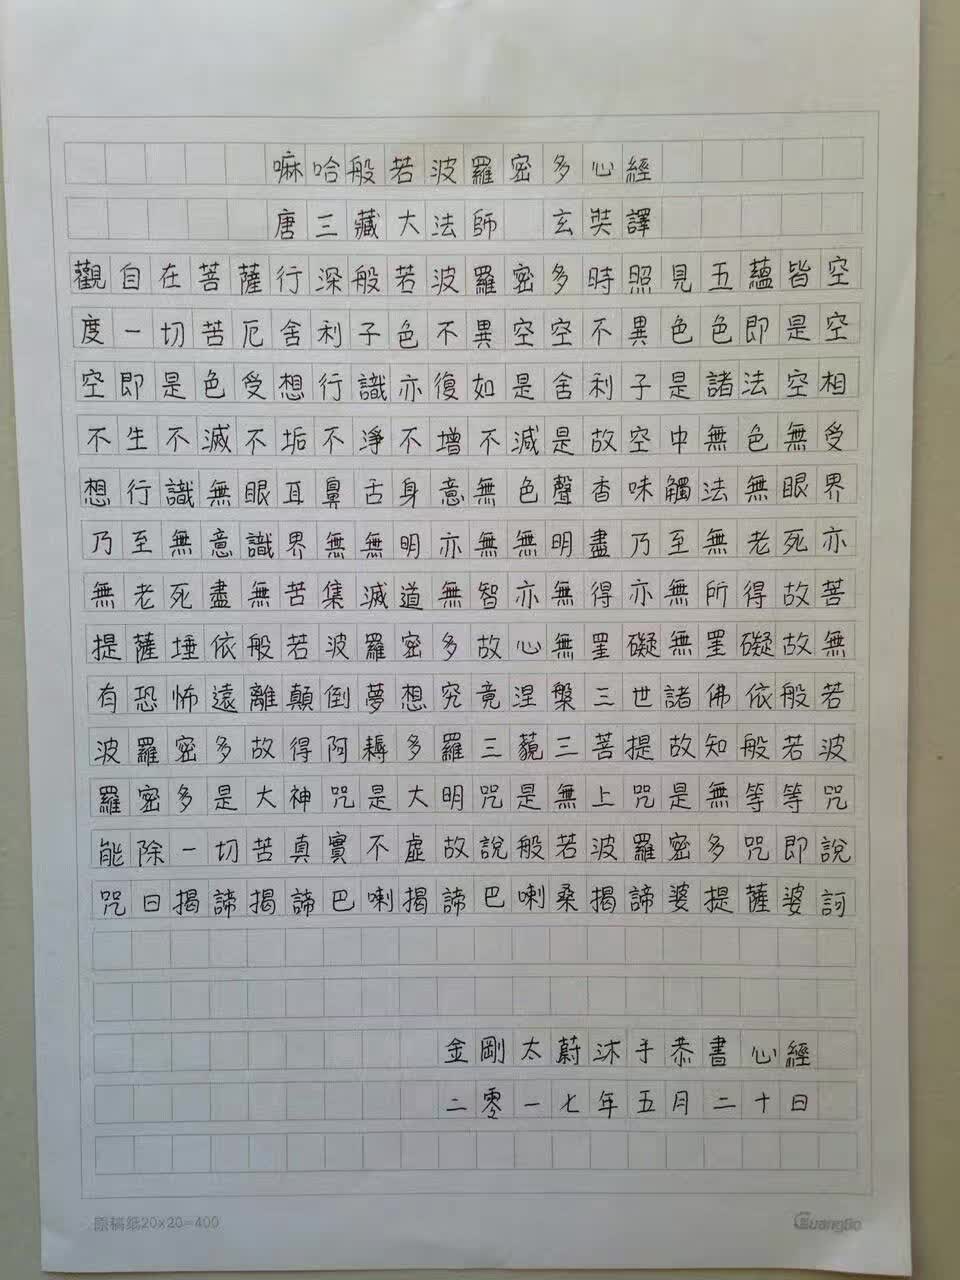 嘛哈般若波羅密多心經
唐三藏大法師 玄奘譯
觀自在菩薩行深般若波羅密多時照見五蘊皆空
度一切苦厄舍利子色不異空空不異色色即是空
空即是色受想行識亦復如是舍利子是諸法空相
不生不滅不垢不淨不增不減是故空中無色無受
想行識無眼耳鼻舌身意無色聲香味觸法無眼界
乃至無意識界無無明亦無無明盡乃至無老死亦
無老死盡無苦集滅道無智亦無得亦無所得故菩
提薩埵依般若波羅密多故心無罣礙無罣礙故無
有恐怖遠離顛倒夢想究竟涅槃三世諸佛依般若
波羅密多故得阿耨多羅三藐三菩提故知般若波
羅密多是大神咒是大明咒是無上咒是無等等咒
能除一切苦真實不虛故說般若波羅密多咒即說
咒曰揭諦揭諦巴喇揭諦巴喇桑揭諦婆提薩婆訶
金剛太蔚沐手恭書心經
二零一七年五月二十日
原稿纸20×20=400
GuangBo